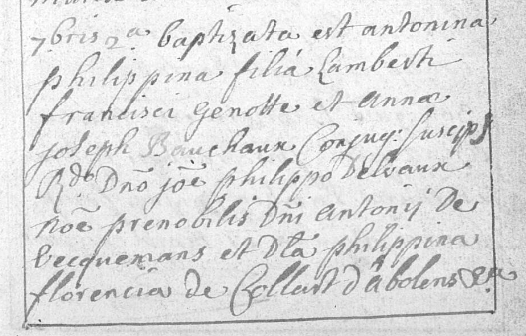 7bris 2a baptizata est antonina
philippina filia Lamberti
francisci Genotte et Annæ
joseph Bauchaux Conjug: suscip:
Rdo Dno joē philippo Delvaux
noē prenobilis Dni Antonij De
becquemans et Dla philippina
florencia de Collart d'abolens &a